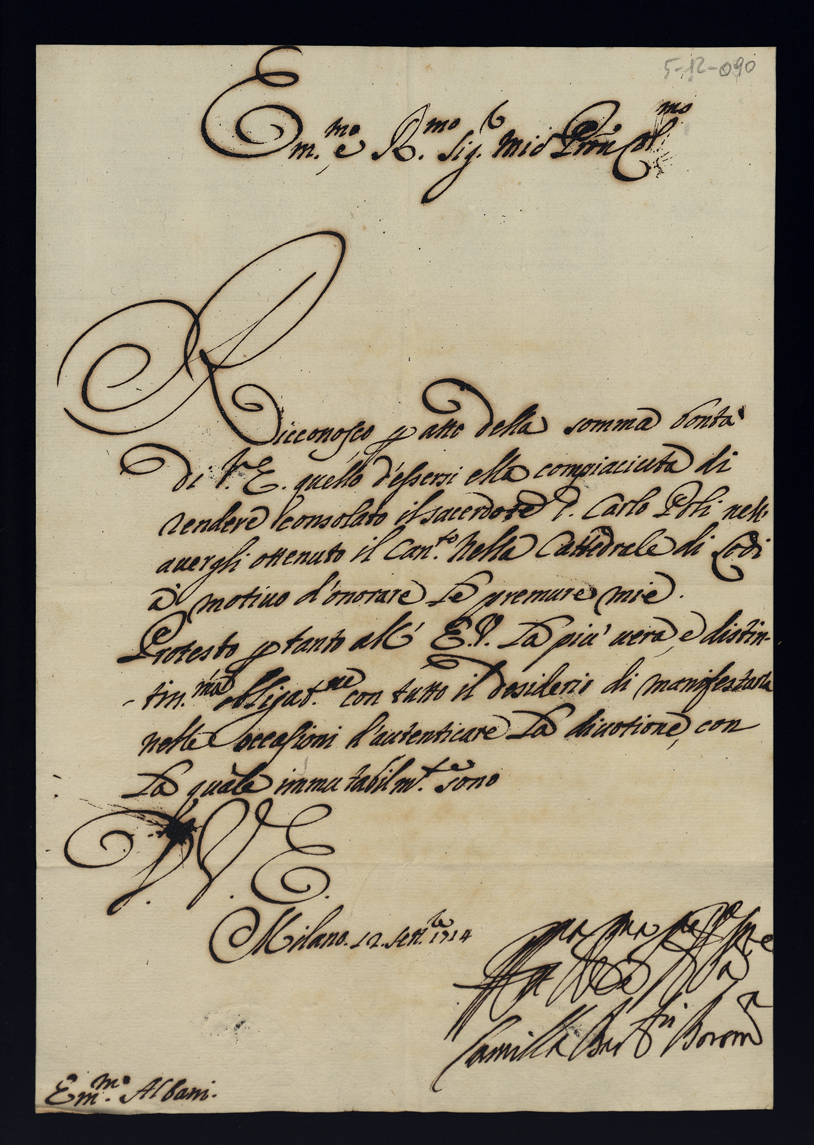 5-12-090
Em.mo e R.mo Sig.r mio Pron Col.mo
Ricconosco p atto della somma bontà
di V. E. quello d'essersi ella compiaciuta di
rendere consolato il sacerdote D. Carlo Poli nell
avergli ottenuto il Can.to nella Cattedrale di Lodi
à motivo d'onorare Le premure mie.
Protesto p tanto all' E.V. La più vera, e distin-
-tin.ma obligat.ne con tutto il desiderio di manifestarla
nelle occasioni d'autenticare La divotione, con
La quale immutabilm.te sono
D. V. E.
Milano. 12. Sett.bre 1714
Camilla Bar.ni Borom.a
Em.mo Albani.